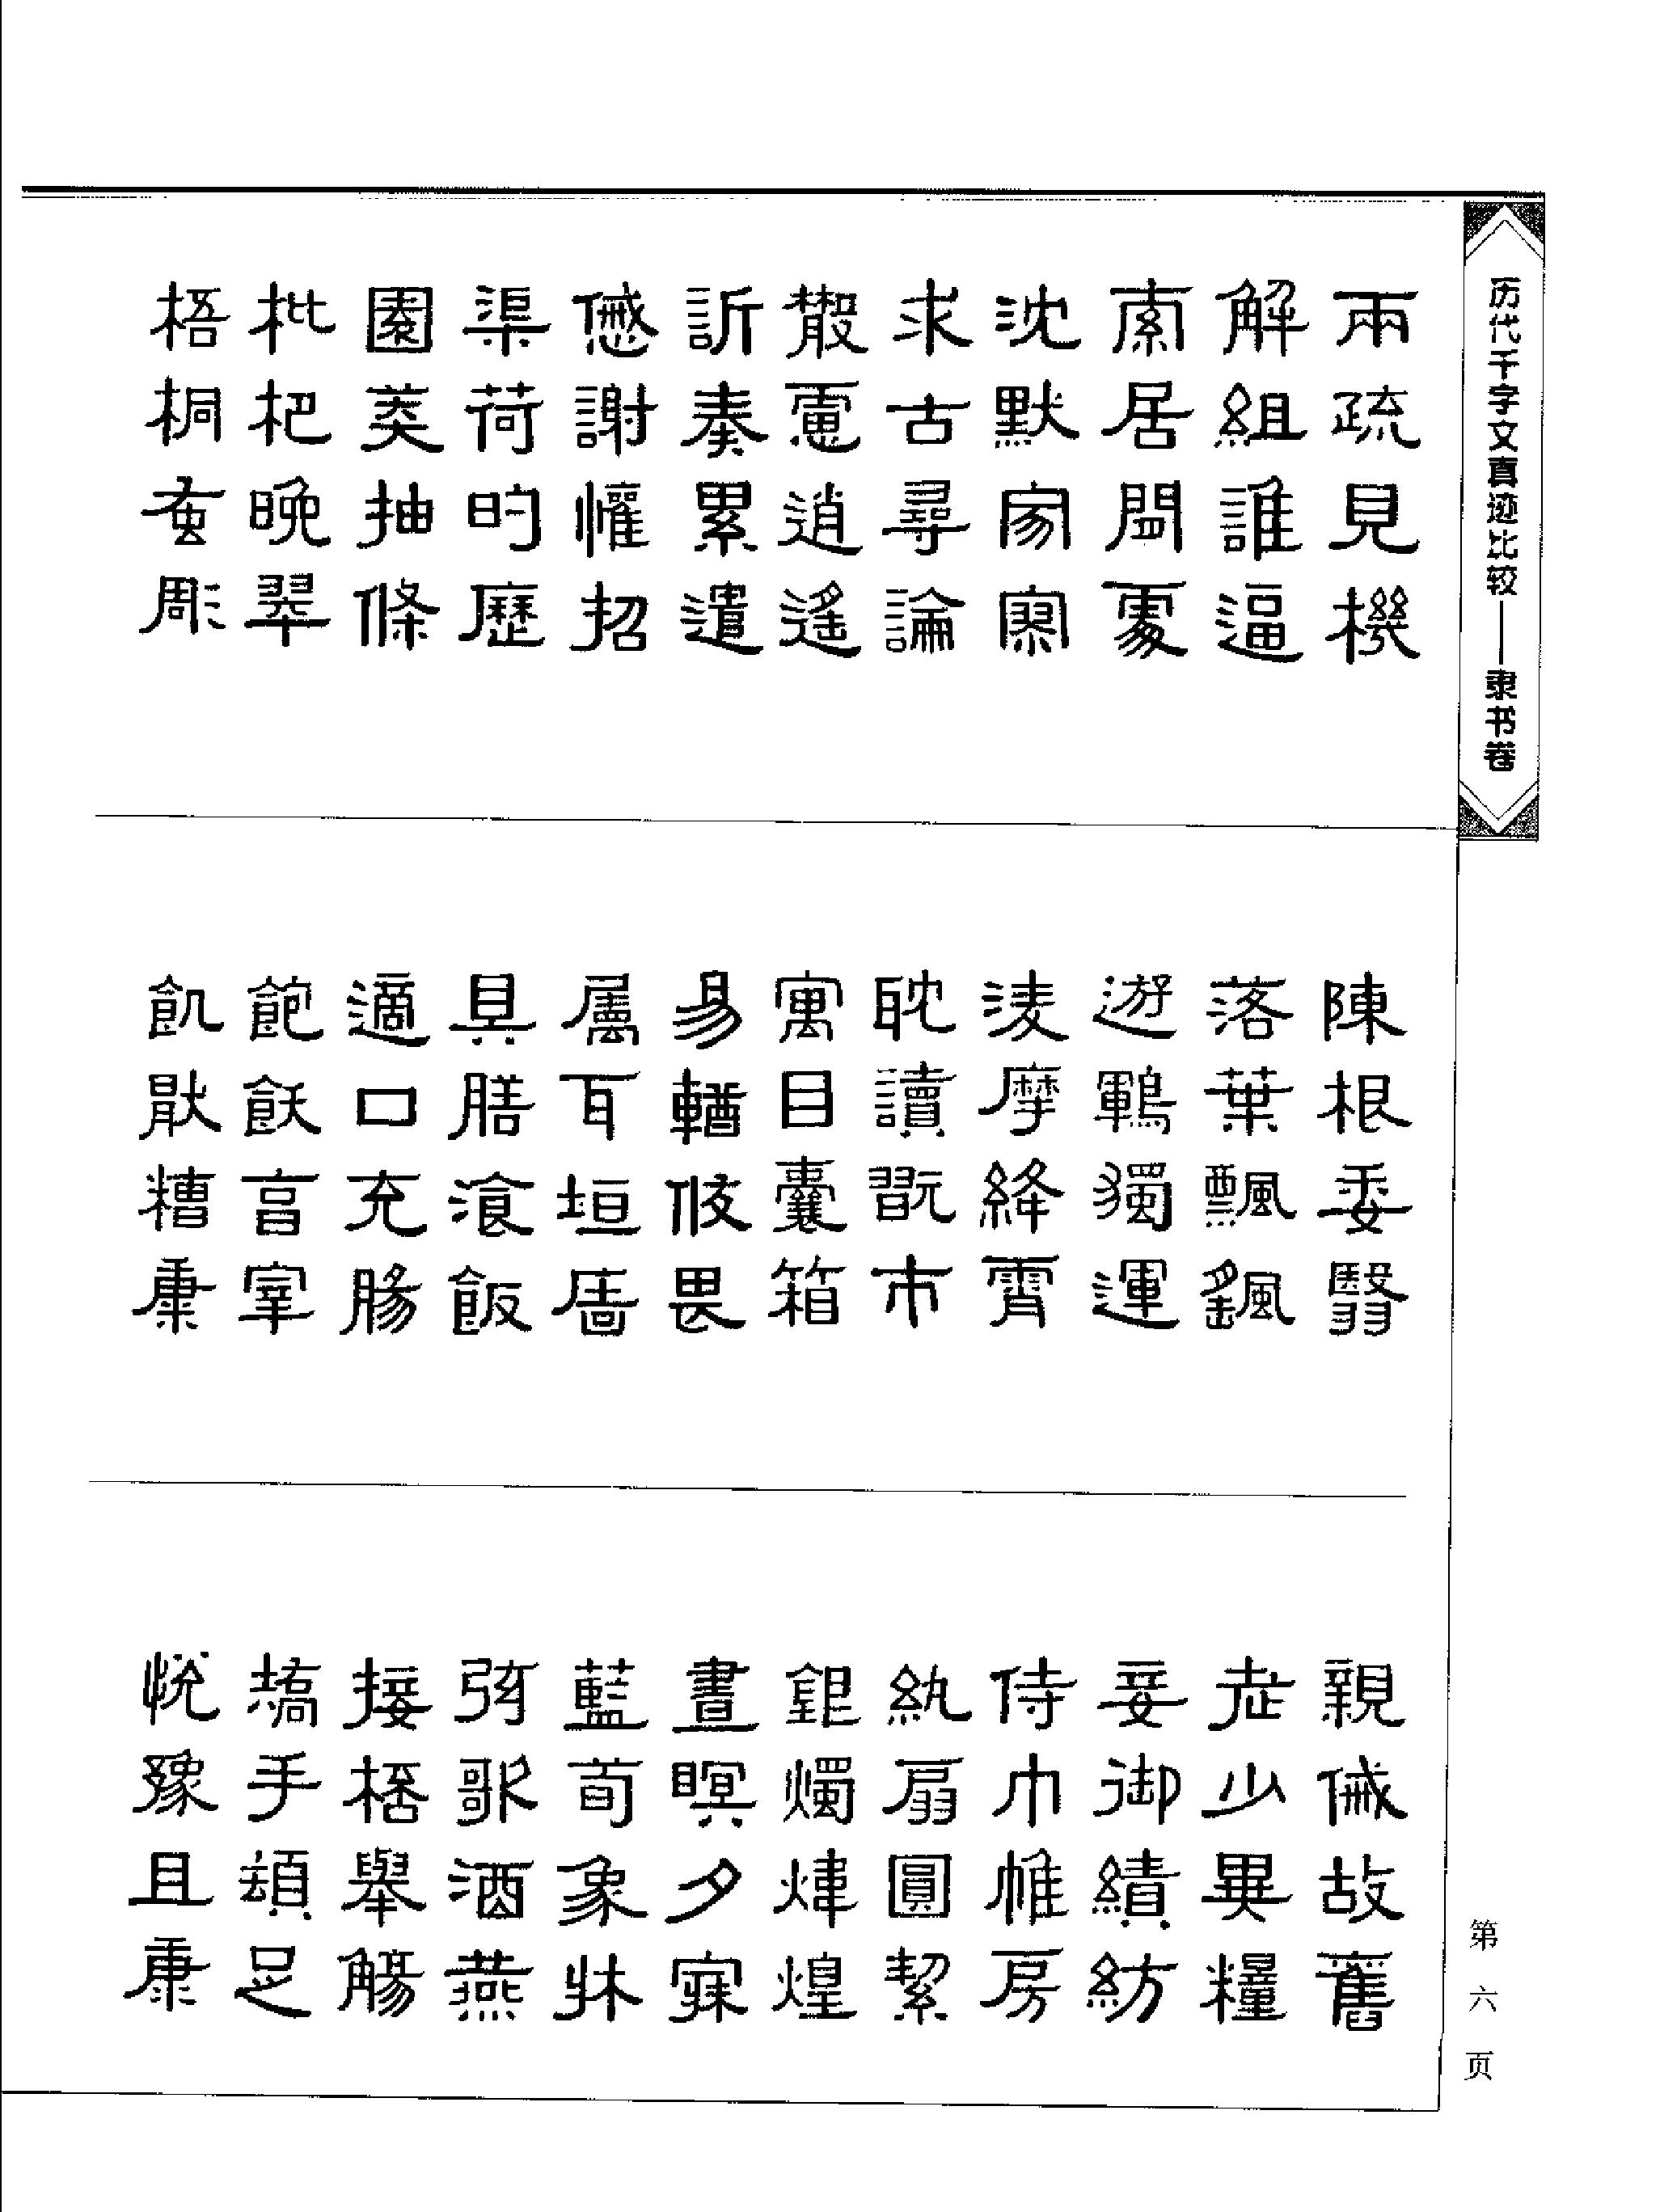 历代千字文真迹比较——隶书卷
兩疏見機
解組誰逼
索居閒處
沈默寂寥
求古尋論
散慮逍遙
訢奏累遣
慼謝懽招
渠荷的歷
園莽抽條
枇杷晚翠
梧桐蚤彫
陳根委翳
落葉飄颻
遊鵾獨運
淩摩絳霄
耽讀翫市
寓目囊箱
易輶攸畏
屬耳垣墻
具膳飡飯
適口充腸
飽飫享宰
飢厭糟糠
親戚故舊
老少異糧
妾御績紡
侍巾帷房
紈扇圓潔
銀燭煒煌
晝瞑夕寐
藍荀象牀
弦歌酒燕
接桮舉觴
撟手頓足
悅豫且康
第六页